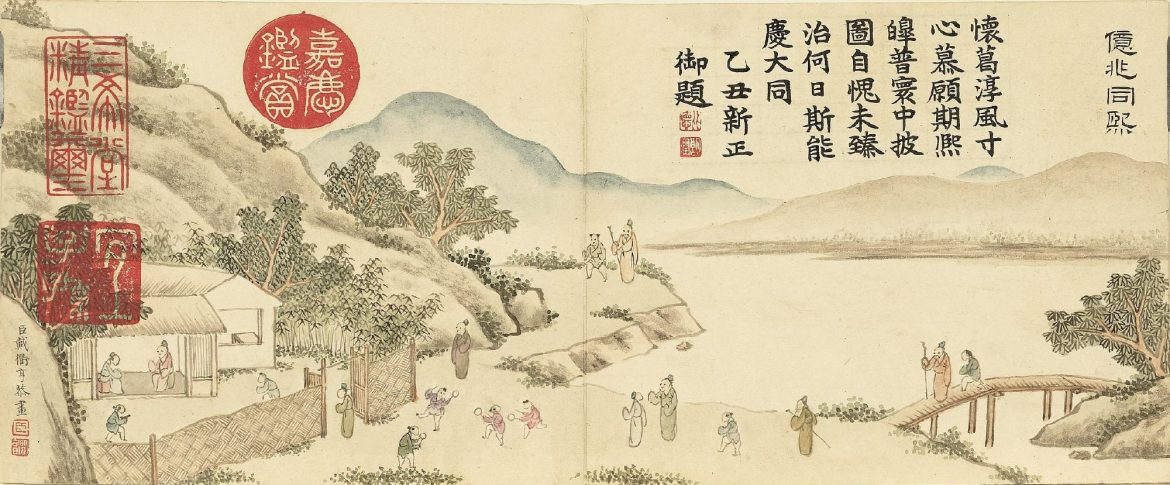 億兆同熙
懷葛淳風寸
心慕願期熈
皥普寰中披
圖自愧未臻
治何日斯能
慶大同
乙丑新正
御題
嘉慶
鑑賞
三希堂
精鑑璽
宜
子孫
臣戴衢亨恭畫